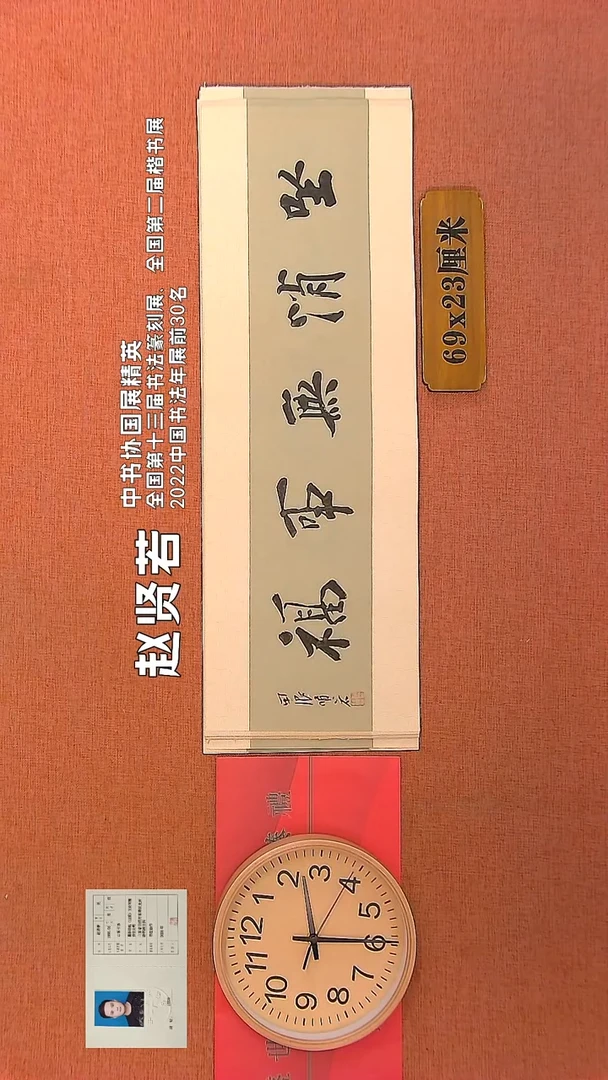 赵贤若
中书协国展精英
全国第十三届书法篆刻展、全国第二届楷书展
2022中国书法年展前30名
坐消無事福
69x23厘米
12
1
2
3
4
5
6
7
8
9
10
11